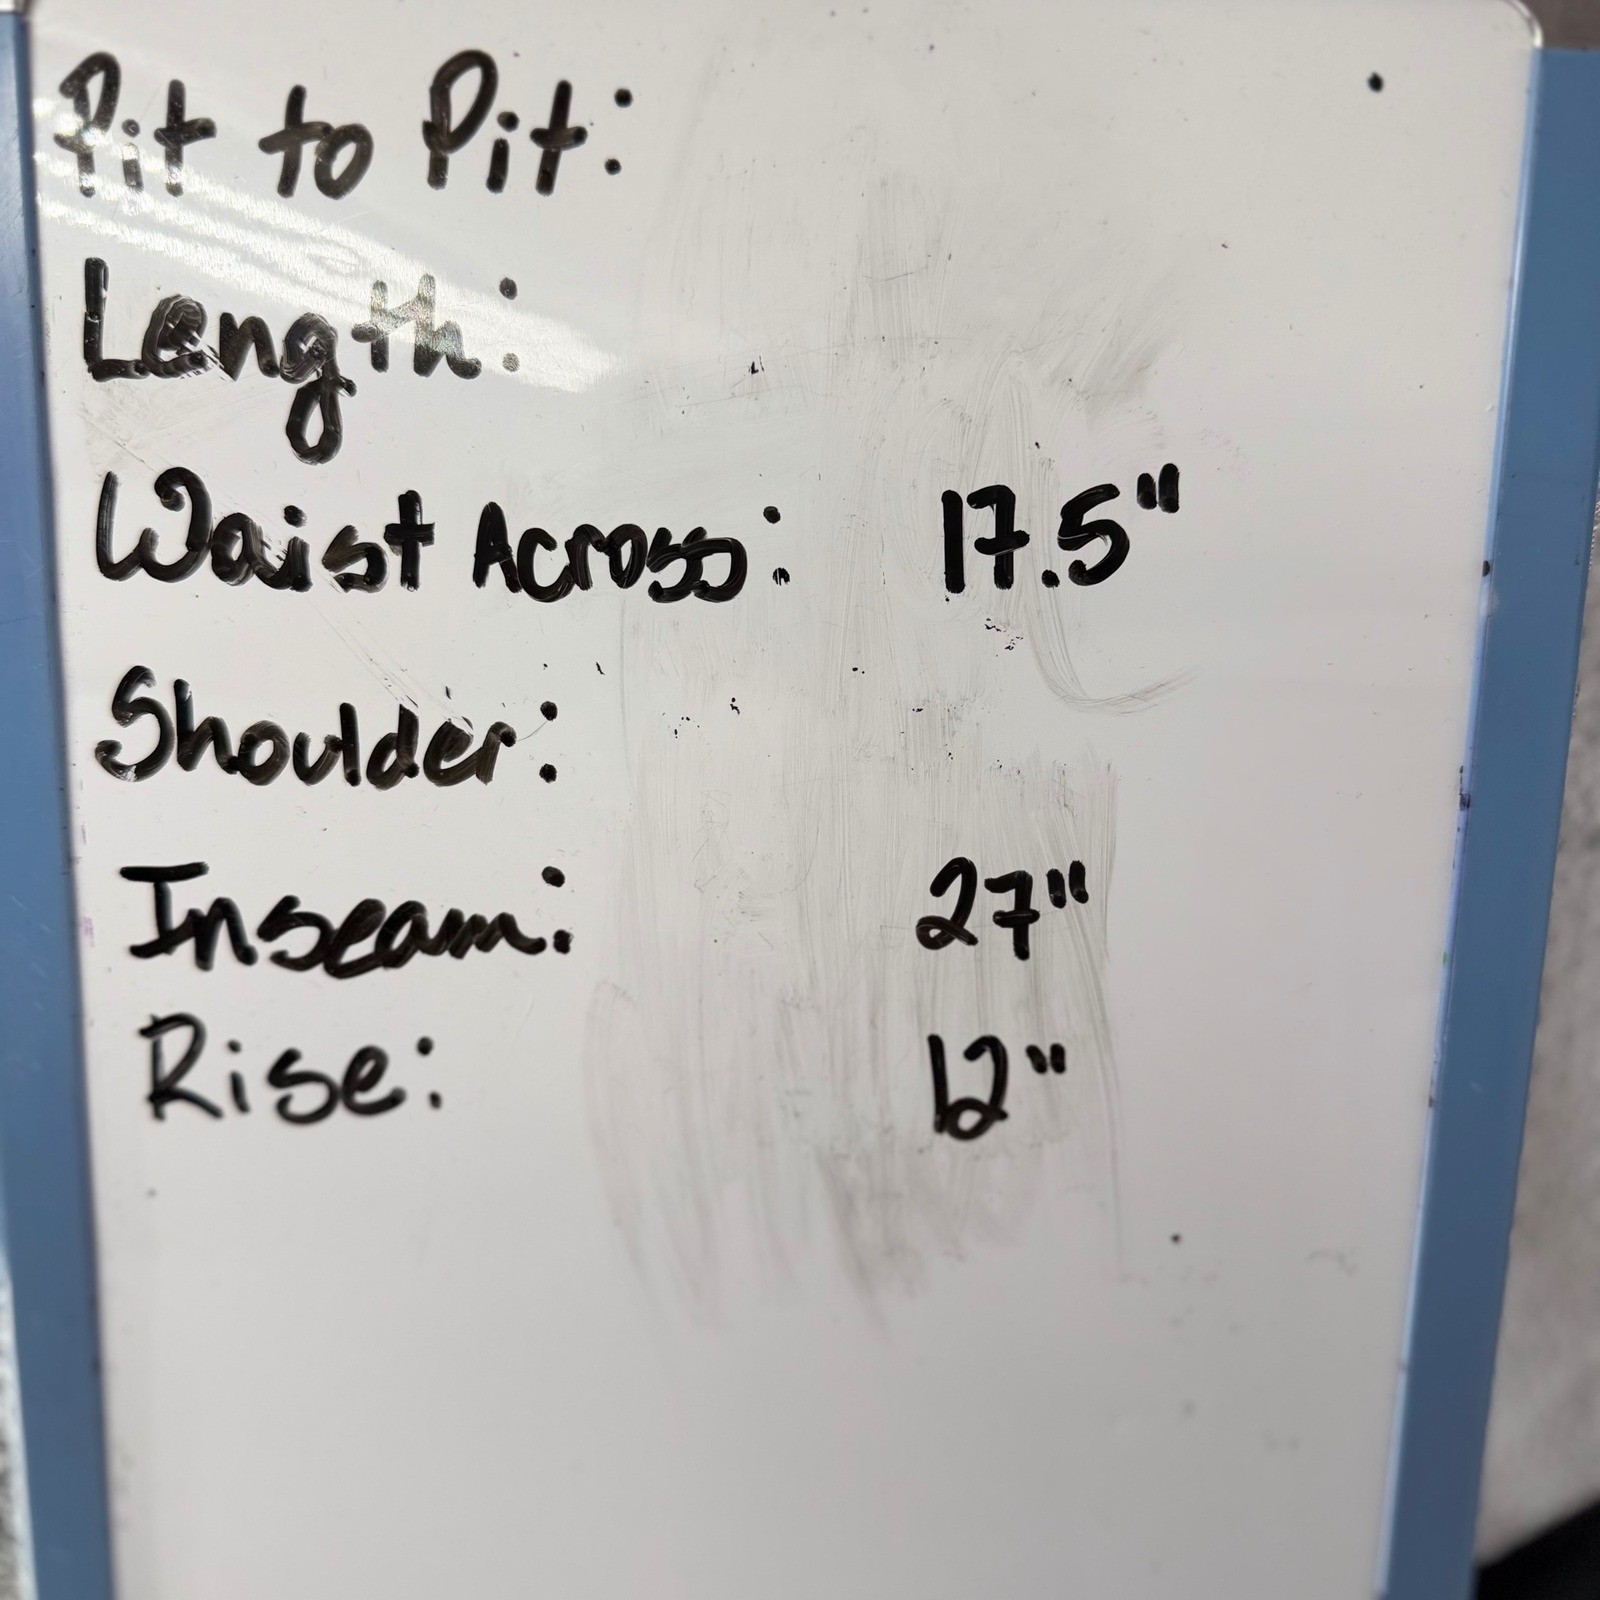 Pit to Pit:
Length:
Waist Across: 17.5"
Shoulder:
Inseam: 27"
Rise: 12"